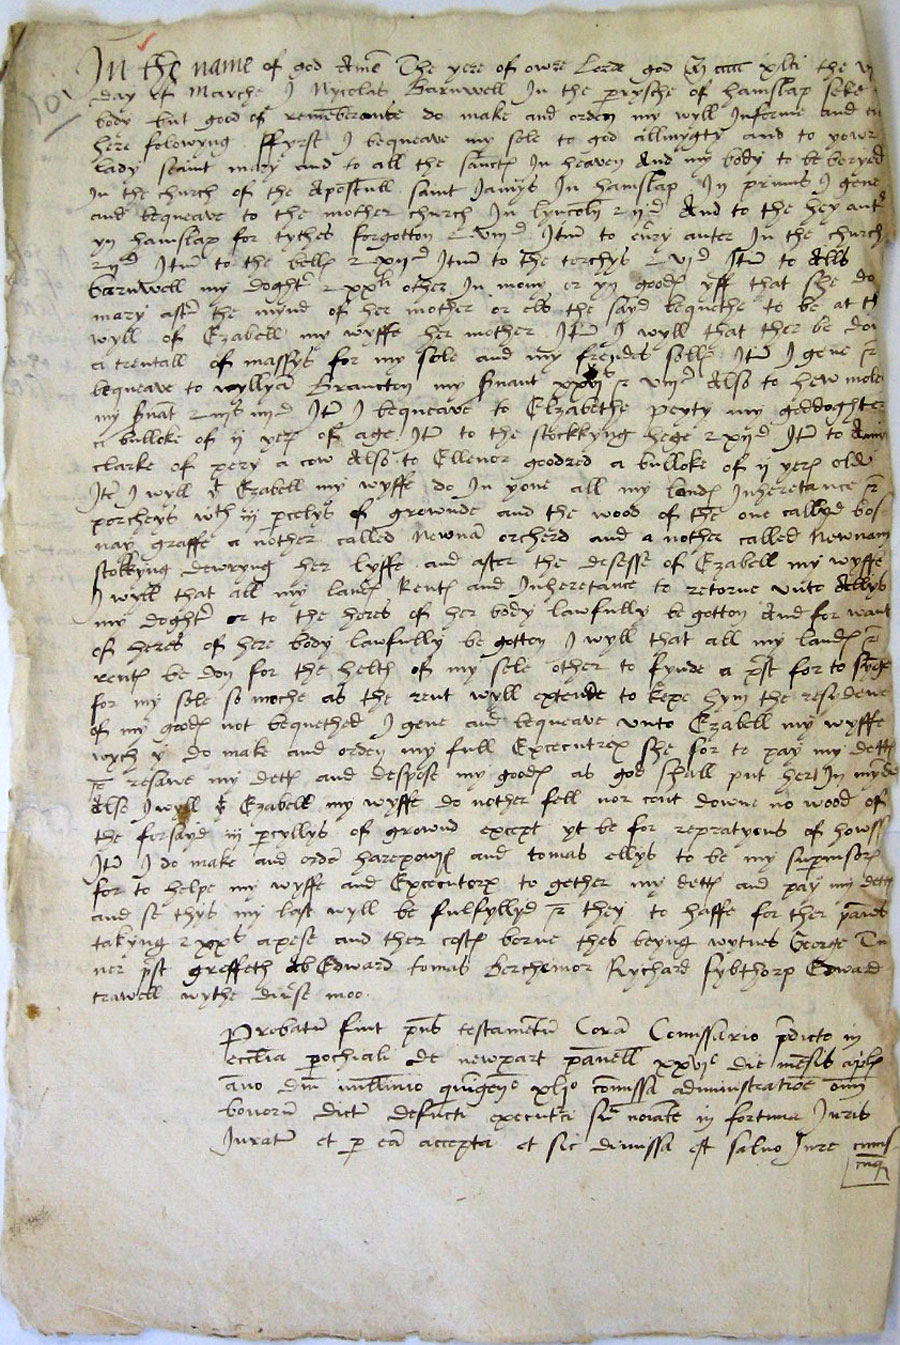 In the name of god Ame The yere of owre Lorde god M ccccc xlti the vi
day of Marche I Nycolas Barnwell In the parysche of hamslap seke
body but good of remembranse do make and orden my wyll In forme and
here folowyng ffyrst I bequeave my sole to god allmygty and to yowr
lady seaint mary and to all the sanctes In heaven And my body to be beryed
In the church of the Apostull saint Jamys In hamslap In primis I geve
and bequeave to the mother church In lyncoln ijd And to the hey
yn hamslap for tythes forgotton viijd Itm to every auter In the church
ijd Itm to the belles xijd Itm to the torchys vjd Itm to Alls
barnwell my doghtr xxli other In mony or yn goodes yff that she do
mary aftr the mynd of her mother or els the sayd bequethe to be at th
wyll of Ezabell my wyffe her mother Itm I wyll that ther be don
a trentall of massys for my sole and my frendes solles Itm I geve &
bequeave to wyllya Brancton my srvant viijd Also to hew
my srvat iiijd Itm I bequeave to Elzabethe peyty my goddoghter
a bulloke of ij yeres of age Itm to the stockkyng hege xijd Itm to
clarke of pery a cow Also to Ellenor goodred a bulloke of ij yeres olde
Itm I wyll yt Ezabell my wyffe do In yone all my landes Inheretance &
porcheys wth iij pcelys of grownde and the wood of the one callyd bos
nay graffe a nother called newna orcherd and a nother called Newnam
stokkyng dewryng her lyffe and after the desesse of Ezabell my wyffe
I wyll that all my landes Rentes and Inheretance to retorne vnto Allys
my doghtr or to the heres of her body lawfully be gotton And for want
of heres of here body lawfully be gotton I wyll that all my landes &
rentes be don for the helth of my sole other to fynde a pst for to synge
for my sole so moche as the rent wyll extende to kepe hym the resydewe
of my goodes not bequethed I geve and bequeave vnto Ezabell my wyffe
wych y do make and orden my full Excecutrex she for to pay my dettes
& resave my dettes and despose my goodes as god shall put her In mynde
Also I wyll yt Ezabell my wyffe do nother fell nor cout downe no wood of
the forsayd iij pcyllys of grownd except yt be for repratyons of howss
Itm I do make and orde harepowes and tomas ellys to be my supervisores
for to helpe my wyffe and Excecutorx to gether my dettes and pay my dettes
and se thys my last wyll be fulfyllyd & they to haffe for ther paines
takyng xxs apese and ther costes borne thes beyng wytnes George
ner pst greffeth ab Edward tomas Berchemor Rychard sybthorp Edward
trawell wythe diverse moo
Probatu fuit pns testamentu Cora Comissario pdicto in
ecclia pochiali de newport panell xxvijo die mensis aplis
ano dni millimo quigeno xljo comissa administratioe oim
bonoru dictu defuncti executrici sup noiate in forma Juris
Jurat et p ea accepta et sic dimissa est salvo Jure cuius
cuq